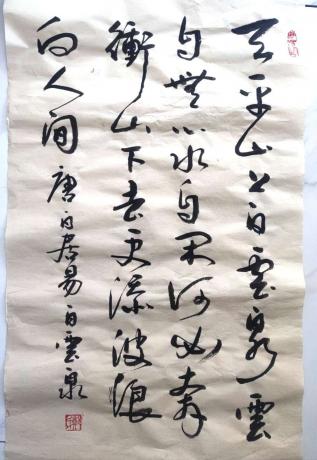 天平山上白雲泉雲
自無心水自闲何必奔
衝山下去更添波浪
向人间 唐白居易白雲泉